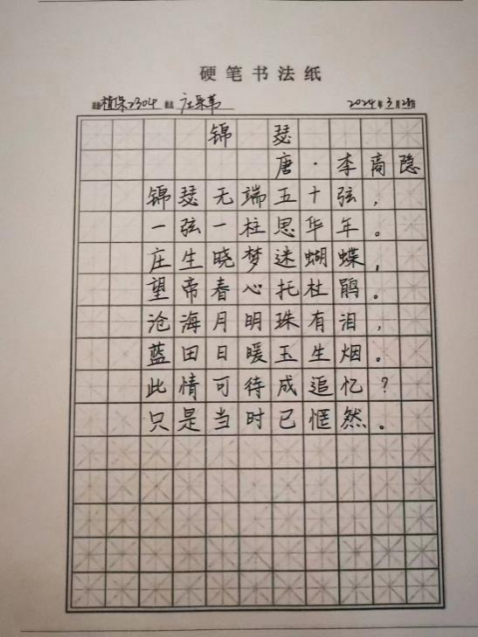 硬笔书法纸
植保2304
2024年3月2
锦瑟
唐·李商隐
锦瑟无端五十弦,
一弦一柱思华年。
庄生晓梦迷蝴蝶,
望帝春心托杜鹃。
沧海月明珠有泪,
蓝田日暖玉生烟。
此情可待成追忆?
只是当时已惘然。